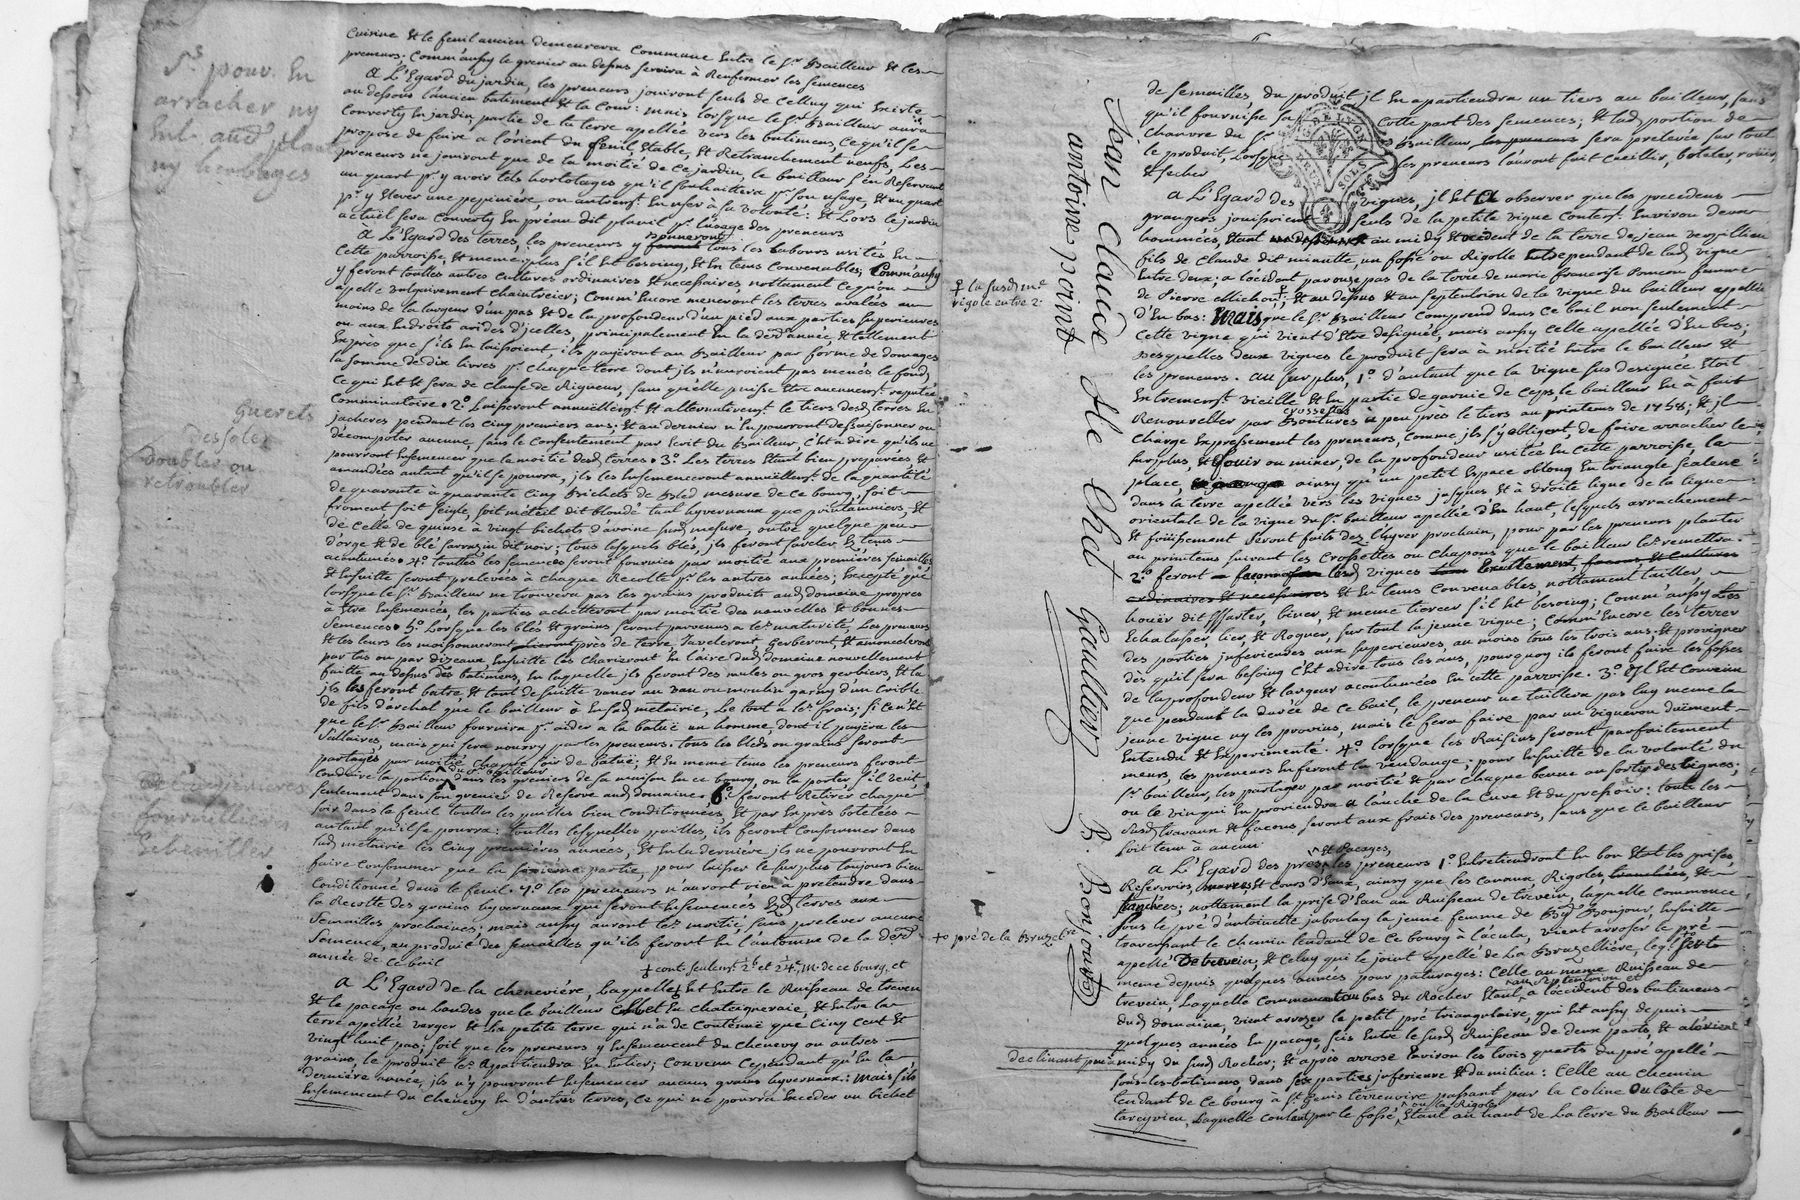 Cuisine et le fenil ancien demeurera Commune Entre le Sr. Bailleur et les
preneurs. Comm'aussy le grenier au dessus servira à Renfermer les semences
A L'Egard du jardin, les preneurs jouiront seuls de Celluy qui Existe
au dessous l'ancien batiment et la Cour: mais lorsque le Sr. Bailleur aura
Converty En jardin partie de la terre appellée vers les batimens, Ce qu'il se
propose de faire a l'orient du fenil, Etable, et Retranchement neufs, Les
preneurs ne jouiront que de la moitié de Ce jardin, le bailleur s'en Reservant
un quart pr. y avoir tels hortolages qu'il souhaittera pr. son usage, et un quart
pr. y Elever une pepinière ou autremt. En User à sa Volonté: Et Lors le jardin
actuel sera Converty En préau dit plansil pr. l'usage des preneurs
A L'Egard des terres, les preneurs y donneront tous les labours usités En
Cette parroisse, Et meme plus s'il Est besoing, Et En tems Convenables; Comm'aussy
y feront touttes autres Cultures ordinaires et necessaires, nottament Ce qu'on
apelle vulgairement Chaintreier; Comm'Encore meneront les terres avalées au
moins de la largeur d'un pas Et de la profondeur d'un pied aux parties superieures
ou aux Endroits arides d'jcelles, principalement En la dère. année, Et tellement
Exprès que s'ils En laissoient, ils payeront au Bailleur par forme de domages
la somme de dix livres pr. chaque terre dont jls n'auroient pas menés le fond,
Ce qui Est Et sera de Clause de Rigueur, sans qu'elle puisse Etre aucunemt. reputée
Comminatoire. 2.° Laisseront annuëllemt. Et alternativemt. le tiers desd. terres En
jacheres pendant les Cinq premiers ans; Et au dernier n'En pourront dessaisonner ou
décompoter aucune, sans le Consentement par Ecrit du Bailleur C'Est à dire qu'ils ne
pourront Ensemencer que la moitié desd. terres. 3.° Les terres Etant bien preparées Et
amandées autant qu'il se pourra, jls les Ensemenceront annuëllemt. de la quantité
de quarante à quarante Cinq Bichets de Bled mesure de Ce bourg, soit
froment soit seigle, soit méteil dit blondé tant hyvernaux que printanniers, Et
de Celle de quinse à vingt bichets d'avoine susd. mesure, outre quelque peu
d'orge Et de blé sarrazin dit noir; tous lesquels blés, jls feront sarcler Es tems
acoutumés. 4.° touttes les semences seront fournies par moitié aux premières semailles
Et Ensuitte seront prelevées à chaque Recolte pr. les autres années; Excepté que
lorsque le Sr. Bailleur ne trouvera pas les grains produits aud. domaine propres
à Etre Ensemencés, les parties achetteront par moitié des nouvelles Et bonnes
semences. 5.° Lorsque les blés Et grains seront parvenus a leur maturité, Les preneurs
Et les leurs les moissonneront près de terre, Javeleront, Gerberont, Et amonceleront
par tas ou par dizeaux. Ensuitte les charieront En l'aire dud. domaine nouvellement
faitte au dessus des batimens, En laquelle jls feront des meules ou gros gerbiers, Et la
jls les feront batre Et tout de suitte vaner au van ou moulin garny d'un Crible
de fils d'archal que le bailleur a En sad. métairie, Le tout a leurs frais; si Ce n'Est
que le Sr. Bailleur fournira pr. aider a la batue un homme, dont il payera les
sallaires, mais qui sera nourry par les preneurs. tous les bleds ou grains seront
partagés par moitié, Chaque soir de batüe; Et En meme tems les preneurs feront
Conduire la portion du Sr. bailleur dans les greniers de sa maison En ce bourg, ou la porter s'il veut
seulement dans son grenier de Reserve aud. domaine. 6.° feront Retirer chaque
soir dans le fenil touttes les pailles bien Conditionnées, Et par Exprès botelées
autant qu'il se pourra: touttes lesquelles pailles, ils feront Consommer dans
lad. métairie les Cinq premières années, Et En la dernière jls ne pourront En
faire Consommer que la sixième partie, pour laisser le surplus toujours bien
Conditionné dans le fenil. 7.° les preneurs n'auront rien à pretendre dans
la Recolte des grains hyvernaux qui seront Ensemencés Esd. terres aux
semailles prochaines; mais aussy auront leur moitié, sans prelever aucune
semence, au produit des semailles qu'ils feront En l'automne de la dère.
année de Ce bail
+ cont. seulemt. 2.b et 24e. m. de ce bourg, et
A L'Egard de la Cheneviére, Laquelle Est Entre le Ruisseau de treven
Et le pacage ou landes que le bailleur En Chateigneraie, Et Entre la
terre appellée verger et la petite terre qui n'a de Contenue que Cinq Cent Et
vingt huit pas; soit que les preneurs y Ensemencent du Chenevy ou autres
grains, le produit leur Apartiendra En Entier; Convenu Cependant qu'En la
dernière année, jls n'y pourront Ensemencer aucuns grains hyvernaux: Mais s'ils
Ensemencent du Chenevy En d'autres terres, Ce qui ne pourra Exceder un bichet
Sr. pour En
arracher ny
ny herbages
Guerets
dessoler
doubler ou
retroubler
fourrillières
de semailles du produit jl En apartiendra un tiers au bailleur, sans
qu'il fournisse sa Cotte part des semences; Et lad. portion de
chanvre du Sr. Bailleur sera prelevée sur tout
le produit, Lorsque les preneurs l'auront fait Cueillir, boteler, roüir,
Et secher
A L'Egard des vignes, jl Est A observer que les precedens
grangers jouissoient seuls de la petite vigne Content. Environ deux
hommées, Etant au midy Et occident de la terre de jean verzillieu
fils de Claude dit minatte, un fossé ou Rigolle Endependant de lad. vigne
Entre deux; a l'ocident parouzepas de la terre de marie francoise poncon femme
de pierre Michon; Et au dessus Et au septentrion de la vigne du bailleur appellée
d'En bas: Mais que le Sr. Bailleur Comprend dans Ce bail non seulement
Cette vigne qui vient d'Etre designée, mais aussy Celle appellée d'En bas;
desquelles deux vignes le produit sera à moitié Entre le bailleur Et
les preneurs. au surplus, 1.° d'autant que la vigne sus designée Etoit
Entierement vieille Et En partie degarnie de Ceps, le bailleur En a fait
Renouveller par crossettes à peu près le tiers au printems de 1768; Et jl
Charge Expressement les preneurs, Comme jls s'y obligent, de faire arracher le
surplus, Et fouir ou miner, de la profondeur usitée En Cette parroisse, la
place, ainsy qu'un petit Espace oblong En triangle scalene
dans la terre appellée vers les vignes jusques Et à droite ligne de la ligne
orientale de la vigne du Sr. bailleur appellée d'En haut, lesquels arrachement
Et foüissement seront faits dès l'hyver prochain, pour par les preneurs planter
au printems suivant les Crossettes ou Chapons que le bailleur leur remettra.
2.° feront lesd. vignes Et En tems Convenables, nottament tailler
houër dit Essarter, biner, Et meme tiercer s'il Est besoing; Comm'aussy Les
Echalasser, lier, Et Rogner, sur tout la jeune vigne; Comm'Encore les terrer
des parties inferieures aux superieures, au moins tous les trois ans; Et provigner
dès qu'il sera besoing C'Est adire tous les ans, pourquoy ils feront faire les fosses
de la profondeur Et largeur acoutumées En Cette parroisse. 3.° Est Est Convenu
que pendant la durée de Ce bail, le preneur ne taillera pas luy meme la
jeune vigne ny les provins, mais le fera faire par un vigneron duëment
Entendu Et Experimenté. 4.° lorsque les Raisins seront parfaitement
meurs, les preneurs En feront la vendange; pour Ensuitte de la volonté du
Sr. bailleur, les partager par moitié Et par chaque benne au sortir des vignes;
ou le vin qui En proviendra a l'anche de la Cuve Et du pressoir: toutes les
susd. travaux Et facons seront aux frais des preneurs, sans que le bailleur
soit tenu à aucuns
A L'Egard des prés Et Pacages, les preneurs 1.° Entretiendront En bon Etat les prises,
Reservoirs, Et Cours d'Eaux, ainsy que les Canaux Rigoles Et
tranchées; nottament la prise d'Eau au Ruisseau de trevein, laquelle Commence
sous le pré d'antoinette jaboulay la jeune femme de By. Bonjour, Ensuitte
traversant le Chemin tendant de Ce bourg à l'acula, vient arroser le pré
apellé De trevein; Et Celuy qui le joint appellé de La Bruzelliére, leql. Sert
meme depuis quelques années pour paturages: Celle au meme Ruisseau de
trevein, Laquelle Commence au bas du Rocher Etant au septentrion et a l'occident des batimens
dud. domaine, vient arroser le petit pré triangulaire, qui Est aussy depuis
quelques années En pacage, scis Entre le susd. Ruisseau De deux parts, Et a l'orient
declinant peu à midy du susd. Rocher; Et après arrose Environ les trois quarts du pré appellé
sous-les-batimens, dans ses parties jnferieure Et du milieu: Celle au chemin
tendant de Ce bourg à St. Genis terrenoire passant par la Coline Ou Côte de
tarcyvieu, Laquelle Coulant par le fossé, ou la Rigole Etant au haut de La terre du Bailleur
+ la susd. me.
rigole entre 2.
+o pré de la Bruzelre.
Jean Claude Ste Chat Gaultier B. Bonjour
antoine point
G. DE LYON
SOLS